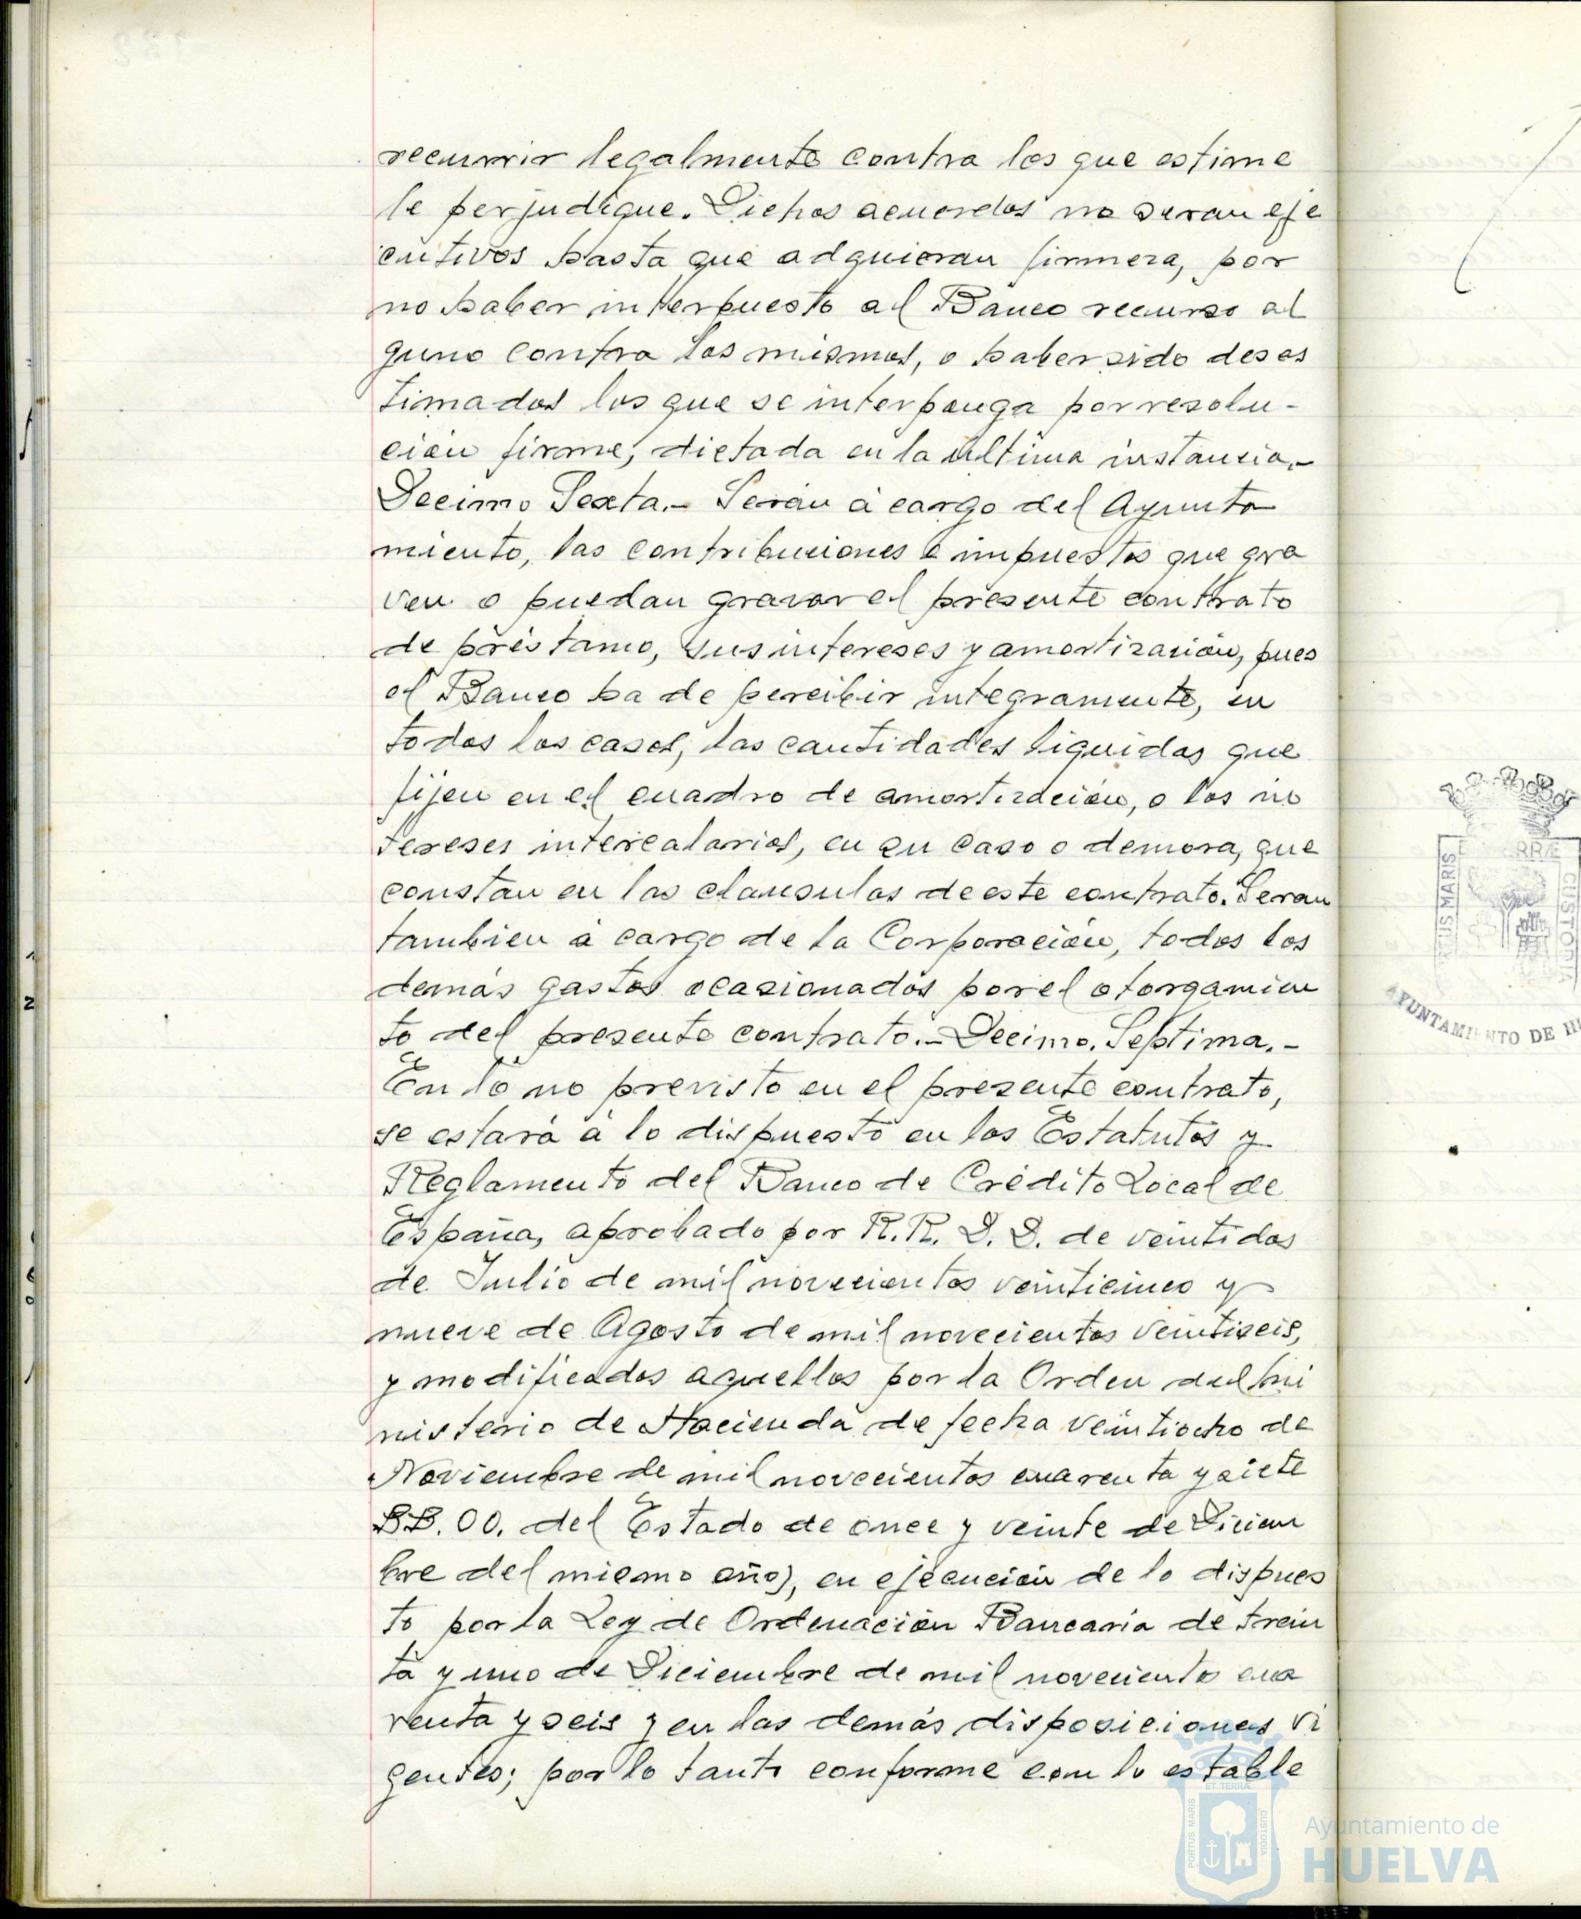 recurrir legalmente contra los que estime
le perjudique. Dichos acuerdos no seran eje
cutivos hasta que adquieran firmeza, por
no haber interpuesto el Banco recurso al
guno contra los mismos, o haber sido deses
timados los que se interponga por resolu-
ción firme, dictada en la última instancia.-
Decimo Sexta.- Serán á cargo del Ayunta
miento, las contribuciones e impuestos que gra
ven o puedan gravar el presente contrato
de préstamo, sus intereses y amortización, pues
el Banco ha de percibir integramente, en
todos los casos, las cantidades liquidas que
fijen en el cuadro de amortización, o los in
tereses intercalarios, en su caso o demora, que
constan en las clausulas de este contrato. Seran
tambien á cargo de la Corporación, todos los
demás gastos ocasionados por el otorgamien
to del presente contrato.- Decimo. Septima.-
En lo no previsto en el presente contrato,
se estará á lo dispuesto en los Estatutos y
Reglamento del Banco de Crédito Local de
España, aprobado por R.R. D.D. de veintidos
de Julio de mil novecientos veinticinco y
nueve de Agosto de mil novecientos veintiseis,
y modificados aquellos por la Orden del Mi
nisterio de Hacienda de fecha veintiocho de
Noviembre de mil novecientos cuarenta y siete
BB. OO. del Estado de once y veinte de Diciem
bre del mismo año), en ejecución de lo dispues
to por la Ley de Ordenación Bancaria de trein
ta y uno de Diciembre de mil novecientos cua
renta y seis y en las demás disposiciones vi
gentes; por lo tanto conforme con lo estable
AYUNTAMIENTO DE H
CUSTODIA
ET TERRÆ
PORTUS MARIS
CUSTODIA
Ayuntamiento de
HUELVA